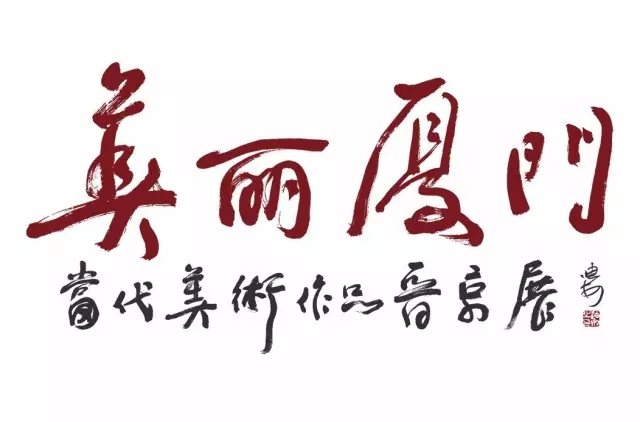 美丽厦門
當代美術作品晋京展
迪安